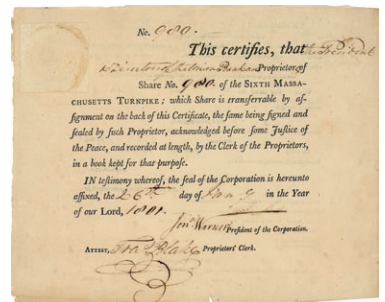 No. 980.
This certifies, that the President
& Directors of Proprietor of
Share No. 980 of the SIXTH MASSA-
CHUSETTS TURNPIKE; which Share is transferrable by as-
signment on the back of this Certificate, the same being signed and
sealed by such Proprietor, acknowledged before some Justice of
the Peace, and recorded at length, by the Clerk of the Proprietors,
in a book kept for that purpose.
IN testimony whereof, the seal of the Corporation is hereunto
affixed, the 26th day of in the Year
of our Lord, 1801.
Jona Warner President of the Corporation.
ATTEST, Ira Blake Proprietors' Clerk.